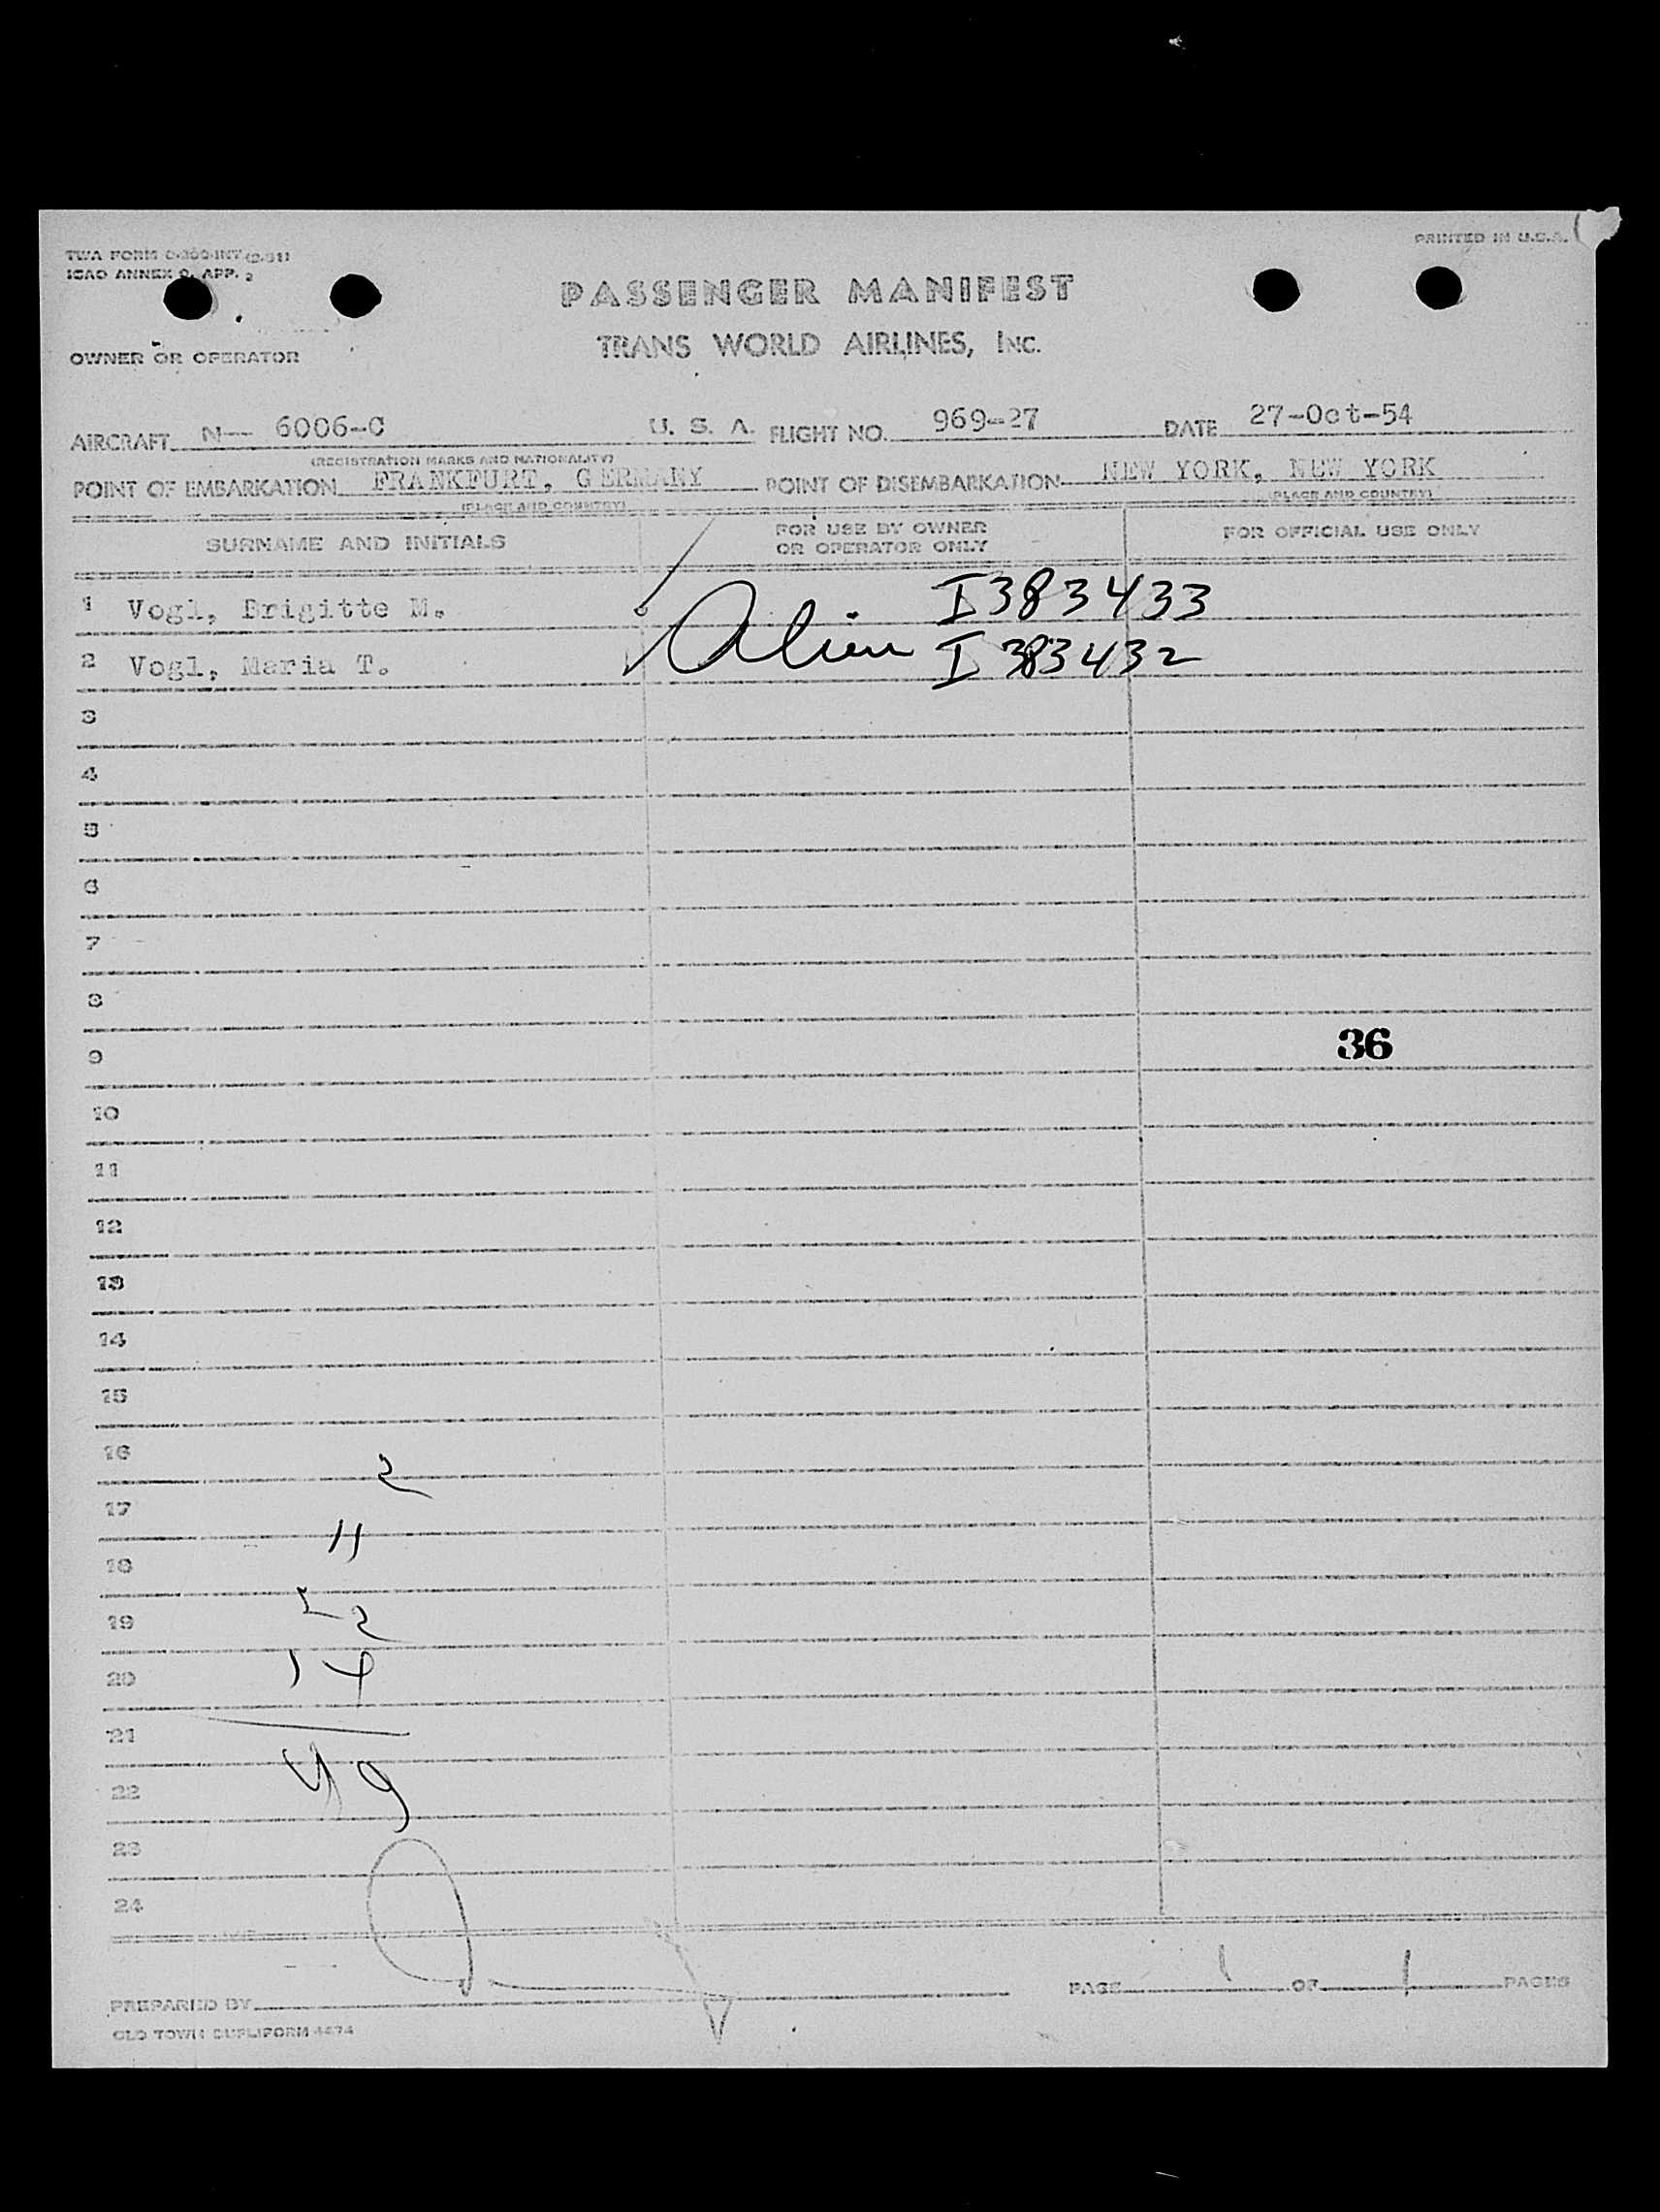 TWA FORM O-300-INT (2-51)
PRINTED IN U.S.A.
ICAO ANNEX 9, APP. 2
PASSENGER MANIFEST
TRANS WORLD AIRLINES, INC.
OWNER OR OPERATOR
AIRCRAFT N— 6006-C U. S. A. FLIGHT NO. 969-27 DATE 27-Oct-54
(REGISTRATION MARKS AND NATIONALITY)
POINT OF EMBARKATION FRANKFURT, GERMANY POINT OF DISEMBARKATION NEW YORK, NEW YORK
(PLACE AND COUNTRY) (PLACE AND COUNTRY)
SURNAME AND INITIALS FOR USE BY OWNER OR OPERATOR ONLY FOR OFFICIAL USE ONLY
1 Vogl, Brigitte M. I383433
Alien
2 Vogl, Maria T. I383432
3
4
5
6
7
8
9 36
10
11
12
13
14
15
16
2
17
11
18
19
22
20 14
21
22 49
23
24
PREPARED BY PAGE 1 OF 1 PAGES
OLD TOWN DUPLIFORM 4474